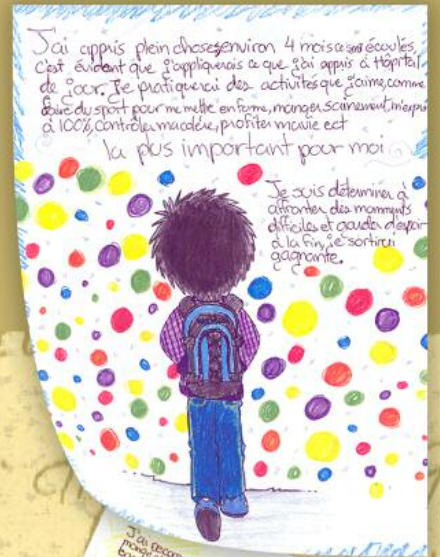 J'ai appris plein choses environ 4 mois ce sont écoulés,
c'est évident que j'appliquerais ce que j'ai appris à Hôpital
de jour. Je pratiquerai des activités que j'aime, comme
faire du sport pour me mettre en forme, manger sainement
à 100%, contrôler ma colère, profiter ma vie ect
la plus important pour moi
Je suis déterminer à
affronter des momments
difficiles et garder d'espoir
à la fin, je sortirai
gagnante.
J'ai